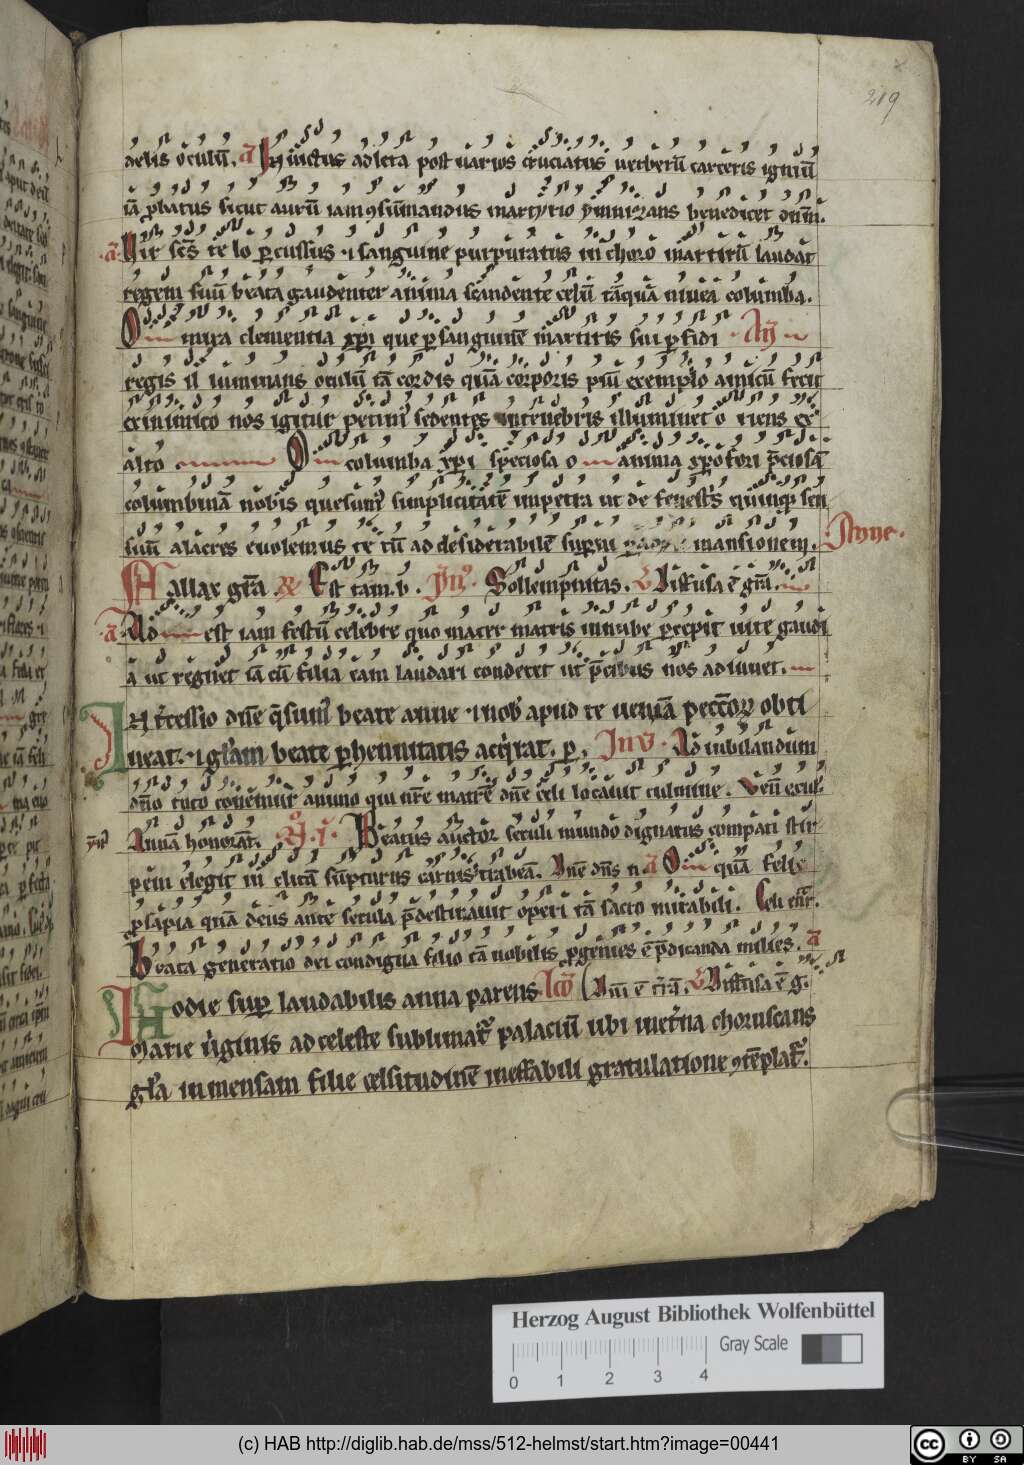 219
delis oculū. a Inuictus adleta post uarios cruciatus uerberū carceris igniū
iā ꝓbatus sicut aurū iam ꝯsūmandus martyrio ymnizans benedicet dnm̄.
a Vir scs̄ telo ꝑcussus ⁊ sanguine purpuratus in choro martirū laudat
regem suū beata gaudenter anima scandente celū tāquā niuea columba.
O mira clementia xp̄i que ꝑ sanguinē martiris sui ꝑfidi
regis illuminans oculū tā cordis quā corporis piū exemplo amicū fecit
ex inimico nos igitur petim᷒ sedentes in tenebris illuminet oriens ex
alto O columba xp̄i speciosa o anima
columbinā nobis quesum᷒ simplicitatē impetra ut de
suū alacres euolemus te cū ad desiderabilē mansionem. Anne.
Fallax gr̄a. Est tam. b. ym̄. Sollempnitas. V Diffusa ē gr̄a.
a Ad est iam festū celebre quo mater matris ꝑcepit uite gaudi
a ut regnet iā cū filia tam laudari condecet ut p̄cibus nos adiuuet.
Intercessio dn̄e q̄sum᷒ beate anne ⁊ nob᷒ apud te ueniā pecc̄oꝝ obti
neat. ⁊ gl̄am beate ꝑhennitatis acq̇rat. ꝑ. Inv̄. Ad iubilandum
dn̄o toto conemur animo qui nr̄e matrē dn̄e celi locauit culmine. Ven
Annā honorant. Beatus auctor seculi mundo dignatus compati stir
pem elegit inclitā sūpturus carnis trabeā. a O quā felix
ꝑ sapia quā deus ante secula p̄destinauit operi tā sacro mirabili. Celi enr̄.
Beata generatio dei condigna filio tā nobilis ꝓgenies ē p̄dicanda milies. a
Hodie suꝑ laudabilis anna parens V Diffusa ē g.
Marie uirginis ad celeste sublimat᷒ palaciū ubi uet̄na choruscans
gl̄a inmensam filie celsitudinē ineffabili gratulatione ꝯtēplat᷒.
Herzog August Bibliothek Wolfenbüttel
Gray Scale
0 1 2 3 4
(c) HAB http://diglib.hab.de/mss/512-helmst/start.htm?image=00441
cc BY SA